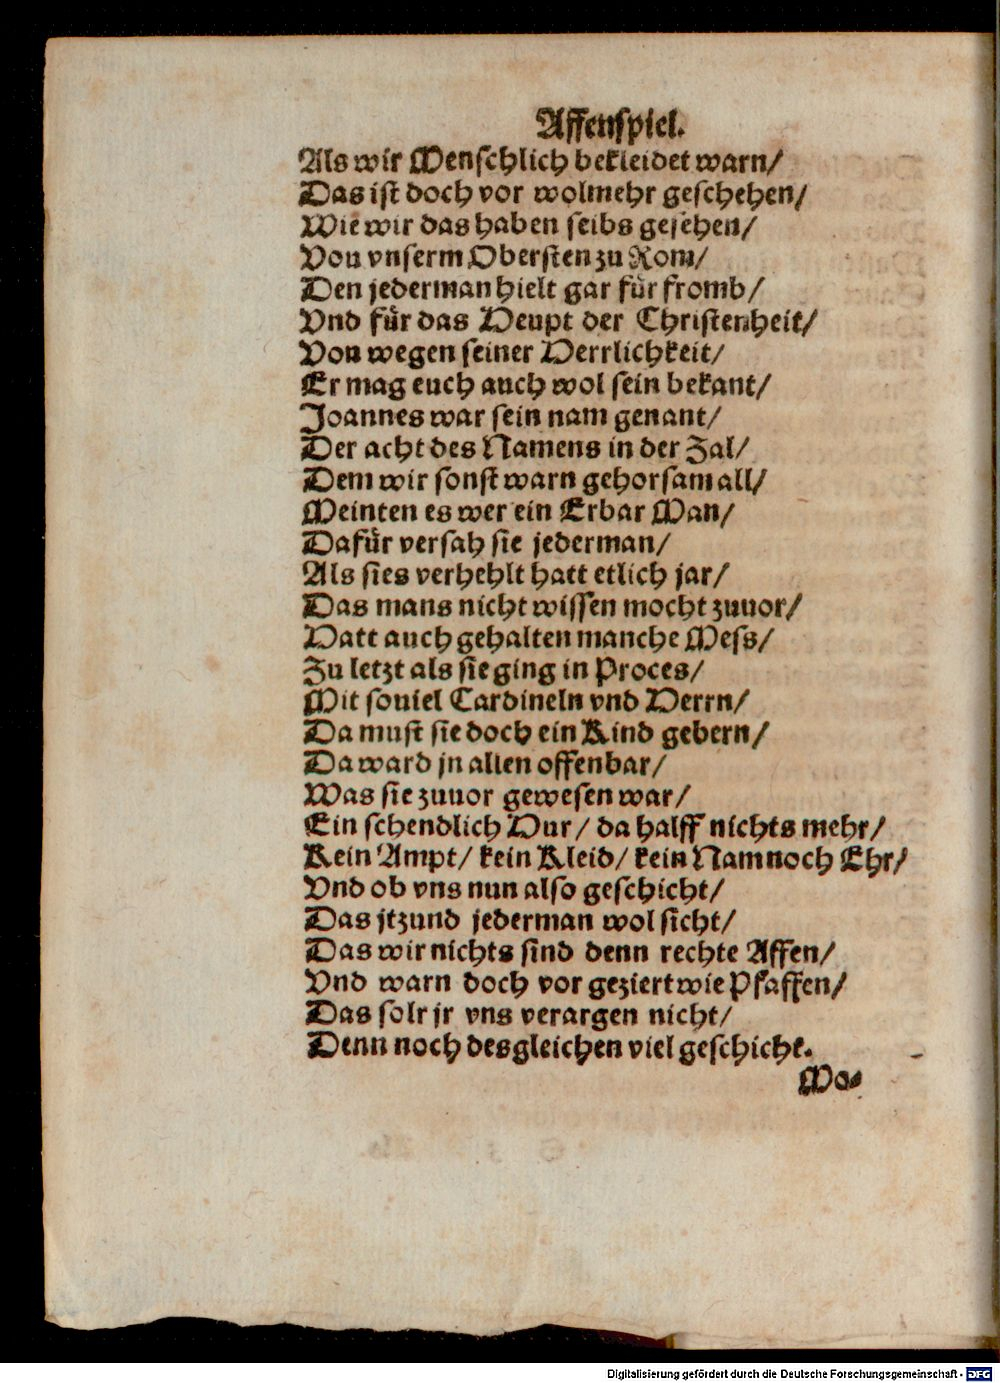 Affenspiel.
Als wir Menschlich bekleidet warn/
Das ist doch vor wolmehr geschehen/
Wie wir das haben selbs gesehen/
Von vnserm Obersten zu Rom/
Den jederman hielt gar für fromb/
Vnd für das Heupt der Christenheit/
Von wegen seiner Herrlichkeit/
Er mag euch auch wol sein bekant/
Joannes war sein nam genant/
Der acht des Namens in der Zal/
Dem wir sonst warn gehorsam all/
Meinten es wer ein Erbar Man/
Dafür versah sie jederman/
Als sies verhehlt hatt etlich jar/
Das mans nicht wissen mocht zuuor/
Hatt auch gehalten manche Mess/
Zu letzt als sie ging in Proces/
Mit souiel Cardineln vnd Herrn/
Da must sie doch ein Kind gebern/
Da ward jn allen offenbar/
Was sie zuuor gewesen war/
Ein schendlich Hur/ da halff nichts mehr/
Kein Ampt/ kein Kleid/ kein Nam noch Ehr/
Vnd ob vns nun also geschicht/
Das jtzund jederman wol sicht/
Das wir nichts sind denn rechte Affen/
Vnd warn doch vor geziert wie Pfaffen/
Das solt jr vns verargen nicht/
Denn noch desgleichen viel geschicht.
Ma-
Digitalisierung gefördert durch die Deutsche Forschungsgemeinschaft - DFG